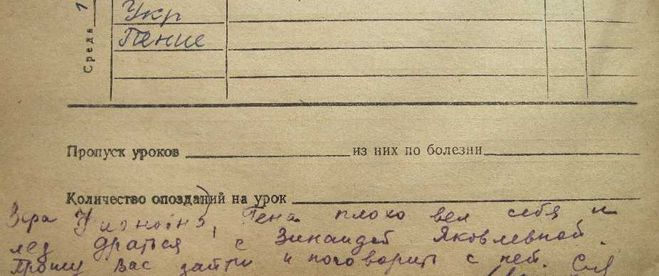 Среда
Укр
Пение
Пропуск уроков из них по болезни
Количество опозданий на урок
Гена плохо вел себя и
лез драться с Зинаидой Яковлевной.
Прошу Вас зайти и поговорить с ней.